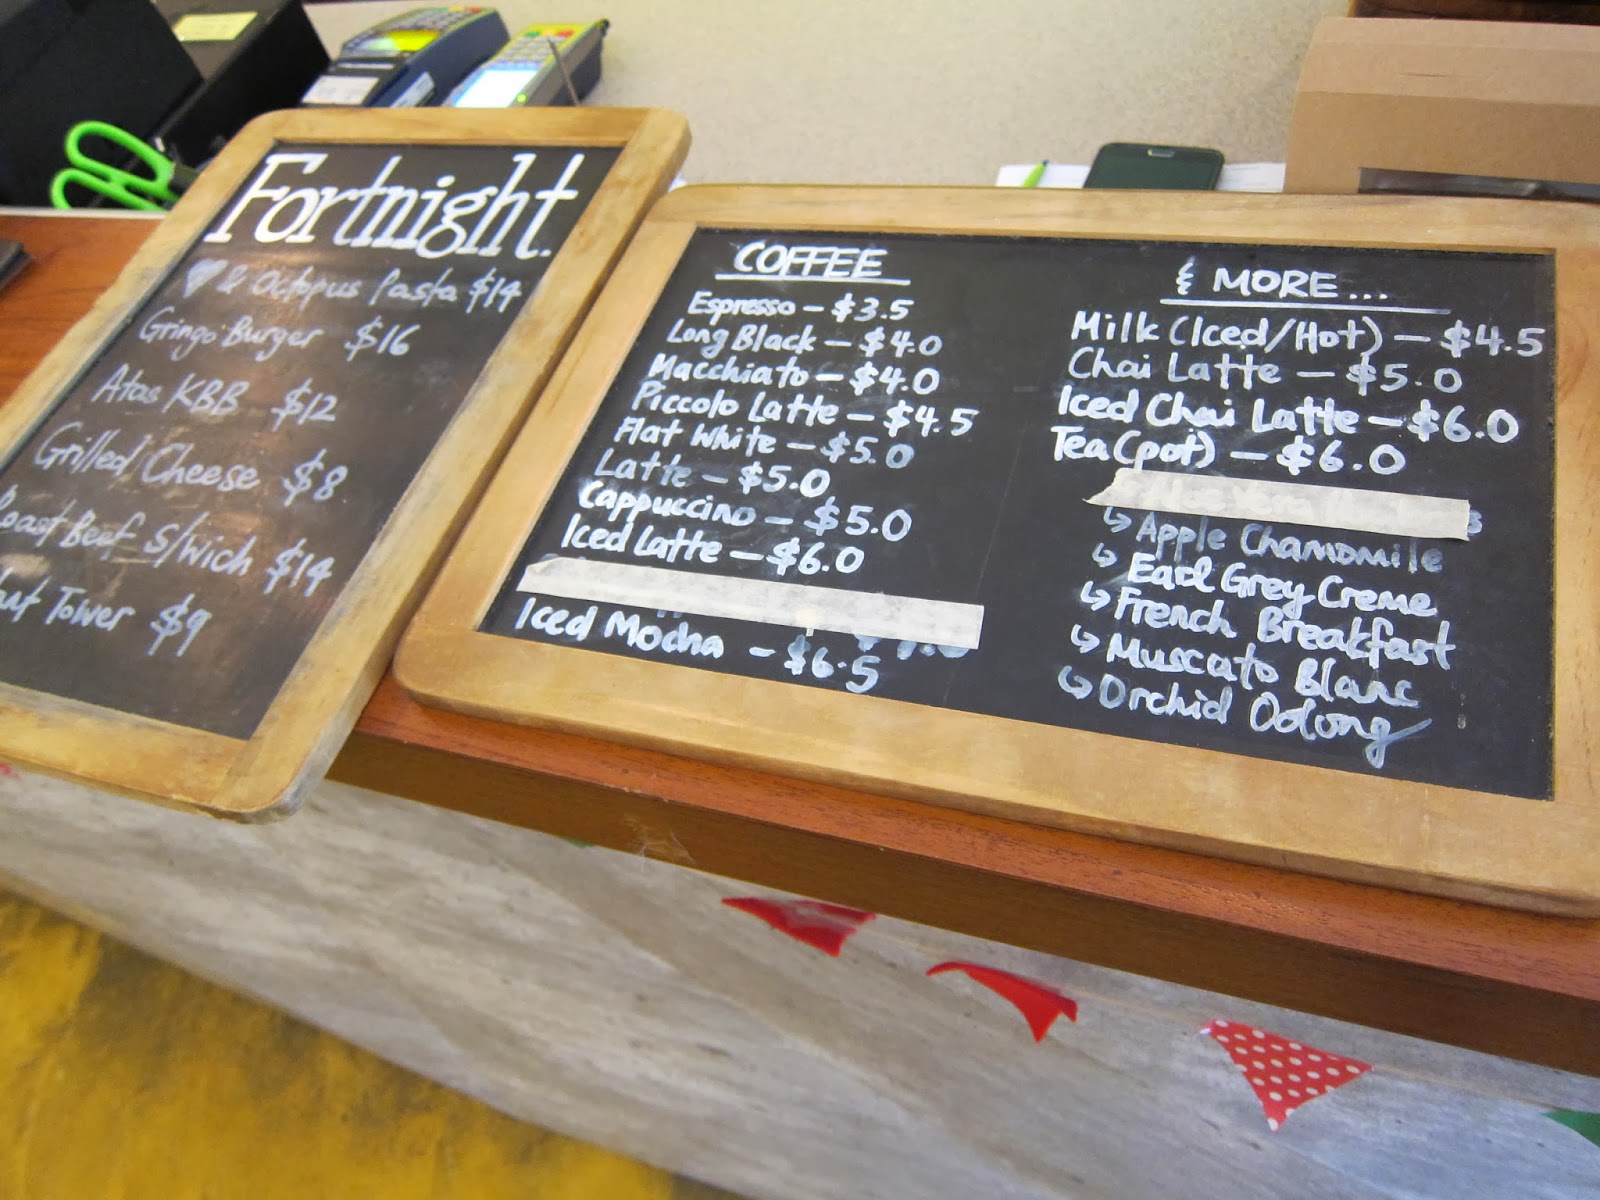 Fortnight.
& Octopus Pasta $14
Gringo Burger $16
Atas KBB $12
Grilled Cheese $8
Roast Beef S/wich $14
Tower $9
COFFEE
Espresso — $3.5
Long Black — $4.0
Macchiato — $4.0
Piccolo Latte — $4.5
Flat White — $5.0
Latte — $5.0
Cappuccino — $5.0
Iced Latte — $6.0
Iced Mocha — $6.5
& MORE...
Milk (Iced/Hot) — $4.5
Chai Latte — $5.0
Iced Chai Latte — $6.0
Tea (pot) — $6.0
↳ Apple Chamomile
↳ Earl Grey Creme
↳ French Breakfast
↳ Muscato Blanc
↳ Orchid Oolong